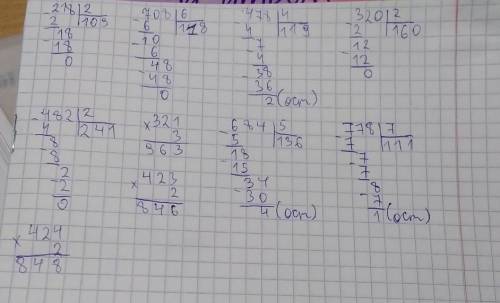 218 | 2
- 2 | 109
18
- 18
0
- 708 | 6
6 | 118
- 10
6
- 48
48
0
- 478 | 4
4 | 119
- 7
4
- 38
36
2 (ост)
- 320 | 2
2 | 160
- 12
12
0
- 482 | 2
4 | 241
- 8
8
- 2
2
0
× 321
3
963
× 423
2
846
- 684 | 5
5 | 136
- 18
15
- 34
30
4 (ост)
- 778 | 7
7 | 111
- 7
7
- 8
7
1 (ост)
× 424
2
848